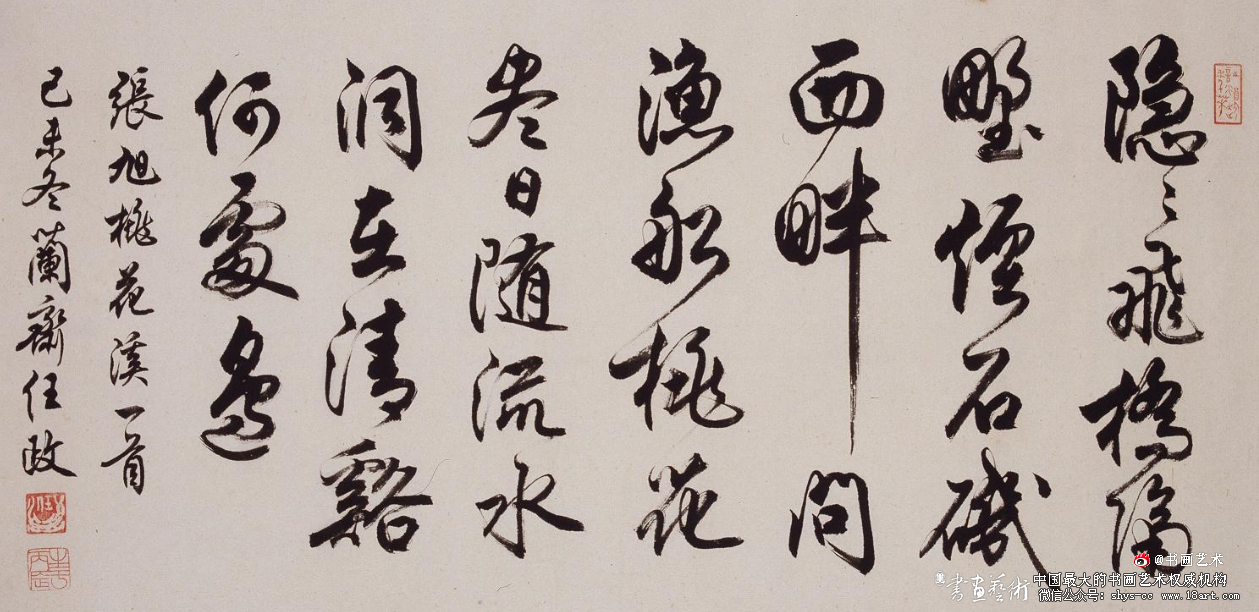 隐〻飛橋隔
野煙石磯
西畔問
漁船桃花
尽日随流水
洞在清谿
何處邊
張旭桃花溪一首
己未冬蘭齋任政
@书画艺术
書画藝術 中国最大的书画艺术权威机构
微信公众号：shys-cc www.18art.com